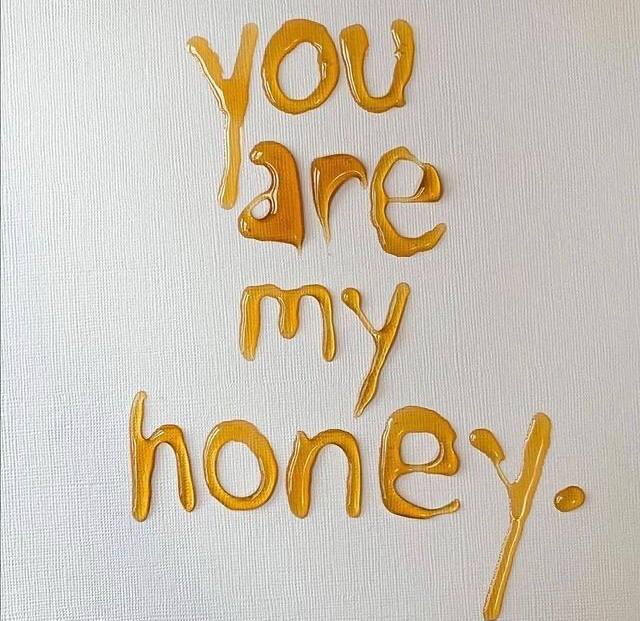 you
are
my
honey.